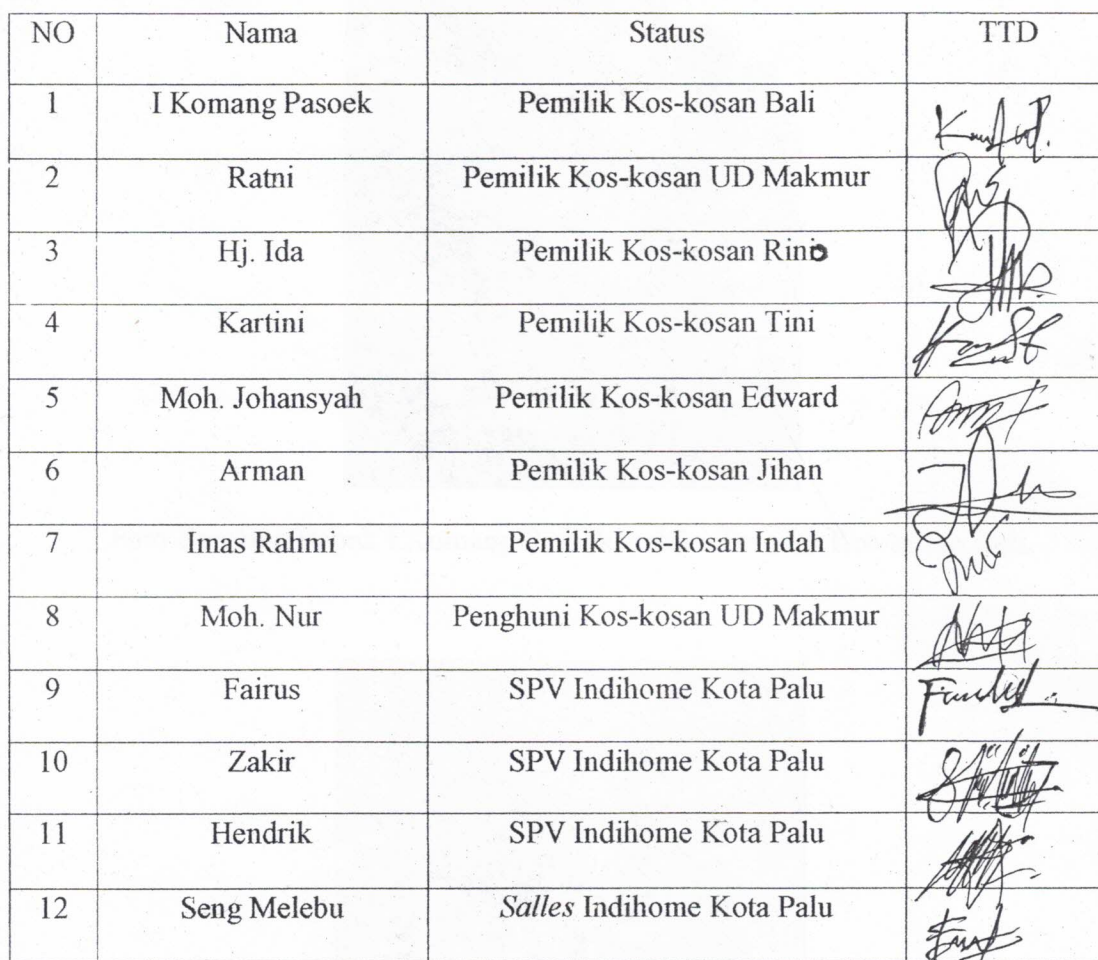 NO Nama Status TTD
1 I Komang Pasoek Pemilik Kos-kosan Bali
2 Ratni Pemilik Kos-kosan UD Makmur
3 Hj. Ida Pemilik Kos-kosan Rini
4 Kartini Pemilik Kos-kosan Tini
5 Moh. Johansyah Pemilik Kos-kosan Edward
6 Arman Pemilik Kos-kosan Jihan
7 Imas Rahmi Pemilik Kos-kosan Indah
8 Moh. Nur Penghuni Kos-kosan UD Makmur
9 Fairus SPV Indihome Kota Palu
10 Zakir SPV Indihome Kota Palu
11 Hendrik SPV Indihome Kota Palu
12 Seng Melebu Salles Indihome Kota Palu